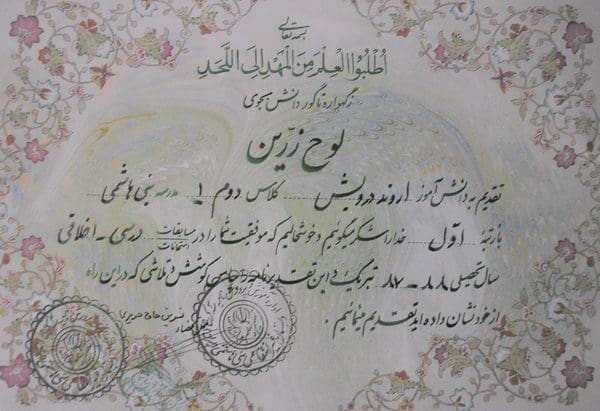 بسمه تعالی
اُطْلُبُوا الْعِلْمَ مِنَ الْمَهْدِ اِلَی اللَّحَدِ
زگهواره تا گور دانش بجوی
لوح زرّین
تقدیم به دانش آموز اروند درویش کلاس دوم ۱ مدرسه بنی هاشمی
با رتبهٔ اوّل خدا را شکر میگوییم و خوشحالیم که موفقیت شما را در مسابقات امتحانات درسی - اخلاقی
سال تحصیلی ۸۸ - ۸۷ تبریک و این تقدیرنامه را کوشش و تلاشی که در این راه
از خود نشان داده اید تقدیم مینمائیم.
نسرین حاج حریری